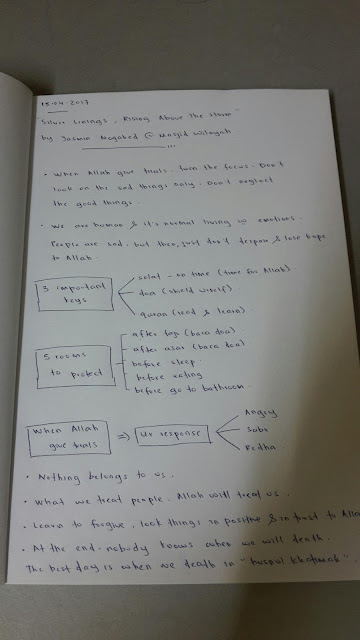 15-04-2017
"Silver Linings, Rising Above The Storm"
by Yasmin Mogahed @ Masjid Wilayah
• When Allah give trials. turn the focus. Don't
look on the sad things only. Don't neglect
the good things.
• We are human & it's normal living w emotions.
People are sad. but then, just don't despair & lose hope
to Allah.
3 important
keys
solat - on time (time for Allah)
doa (shield urself)
quran (read & learn)
5 rooms
to protect
after fajr (baca doa)
after asar (baca doa)
before sleep.
before eating
before go to bathroom.
When Allah
give trials
⇒
Ur response
Angry
Sabr
Redha
• Nothing belongs to us.
• What we treat people. Allah will treat us.
• Learn to forgive. look things in positive & in trust to Allah
• At the end. nobody knows when we will death.
The best day is when we death in "husnul khatimah".